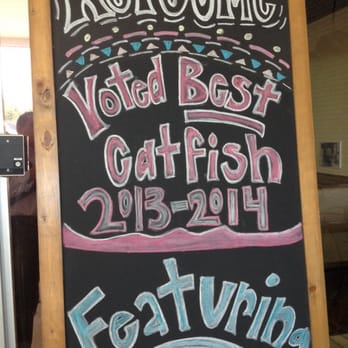 Welcome
Voted Best
Catfish
2013-2014
Featuring